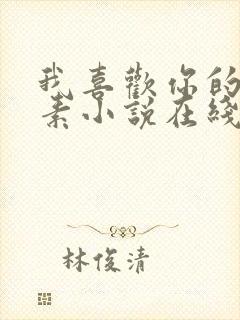 我喜歡你的
素小說在綫
林俊清